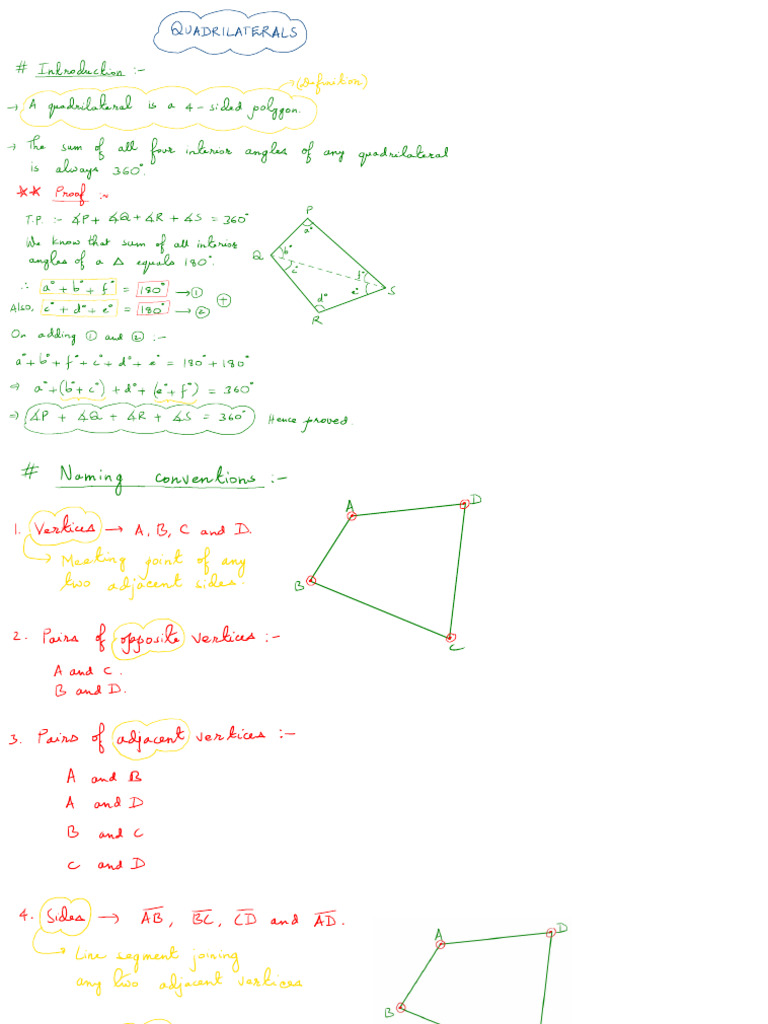 QUADRILATERALS
# Introduction :-
(Definition)
→ A quadrilateral is a 4-sided polygon.
→ The sum of all four interior angles of any quadrilateral
is always 360°.
** Proof :~
T.P. :- ∡P + ∡Q + ∡R + ∡S = 360°
We know that sum of all interior
angles of a Δ equals 180°.
∴ a° + b° + f° = 180° → ①
Also, c° + d° + e° = 180° → ②
+
On adding ① and ② :-
a° + b° + f° + c° + d° + e° = 180° + 180°
⇒ a° + (b° + c°) + d° + (e° + f°) = 360°
⇒ ∡P + ∡Q + ∡R + ∡S = 360° Hence proved.
P
a°
Q
b°
c°
f°
e°
S
d°
R
# Naming conventions :-
1. Vertices → A, B, C and D.
→ Meeting point of any
two adjacent sides.
A
D
B
C
2. Pairs of opposite vertices :-
A and C.
B and D.
3. Pairs of adjacent vertices :-
A and B
A and D
B and C
C and D
4. Sides → A̅B̅, B̅C̅, C̅D̅ and A̅D̅.
→ Line segment joining
any two adjacent vertices
A
D
B